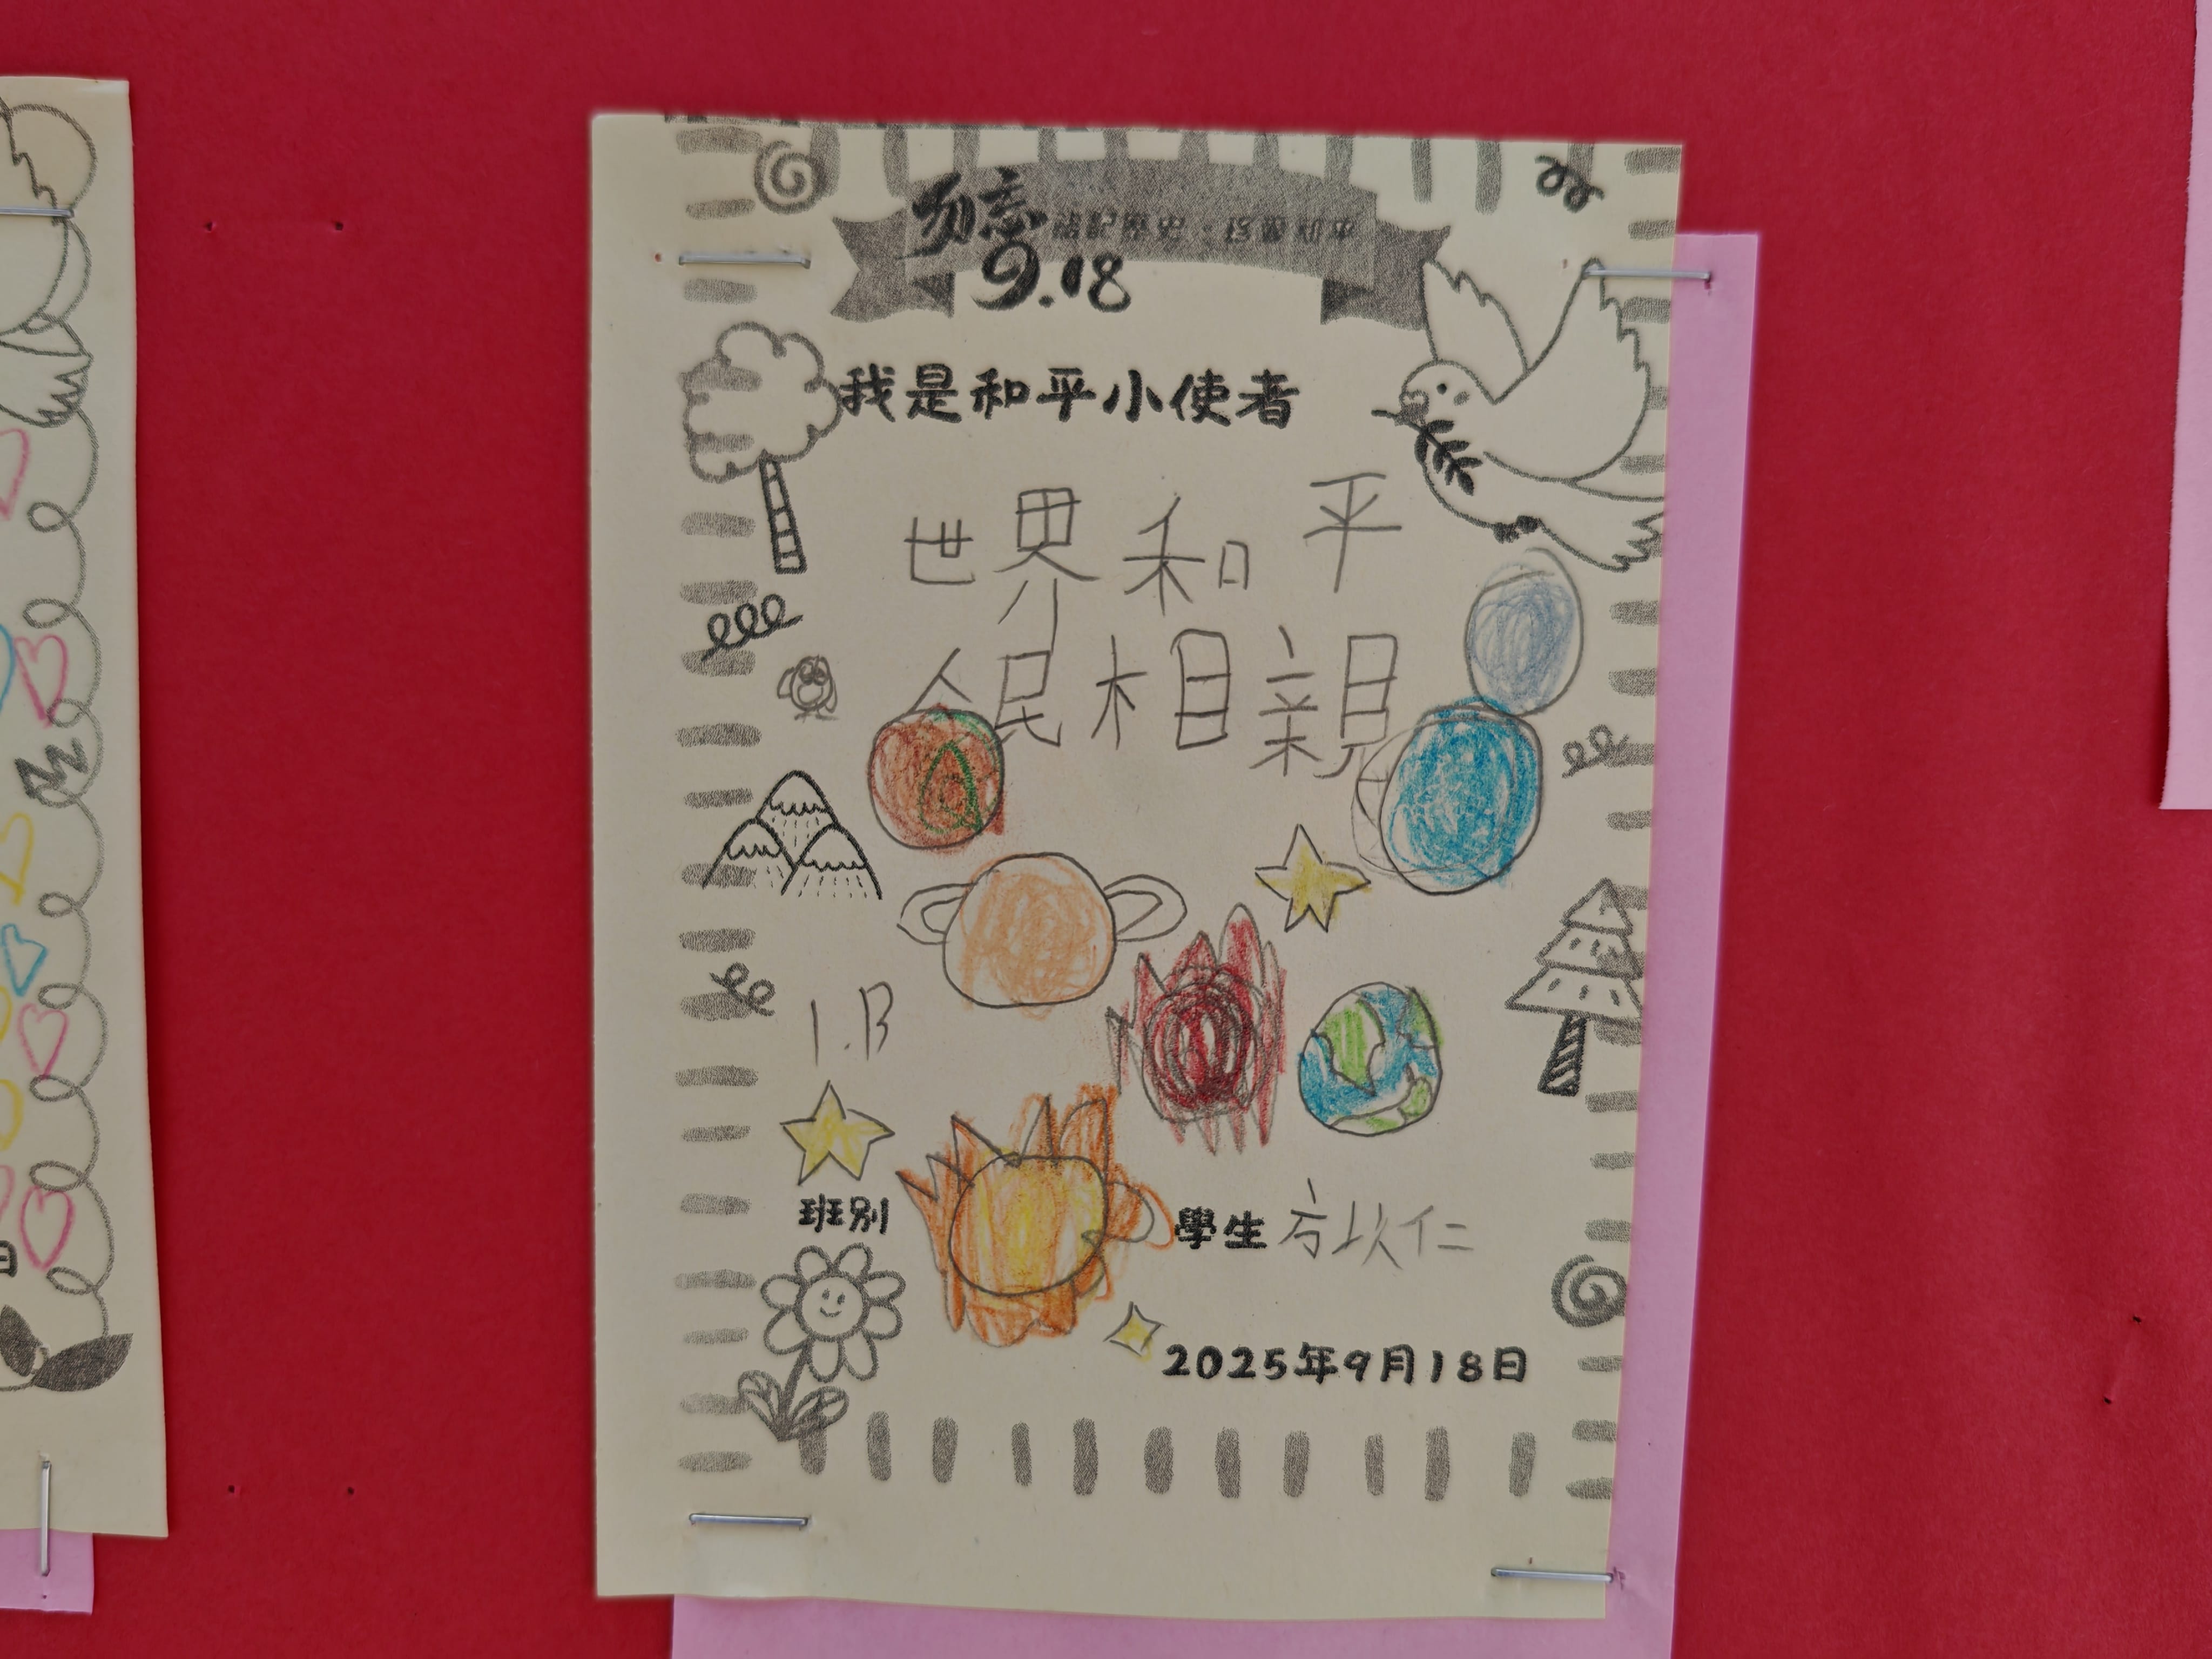 勿忘
9.18
銘記歷史·珍愛和平
我是和平小使者
世界和平
人民相親
1.B
班別
學生 方以仁
2025年9月18日
日